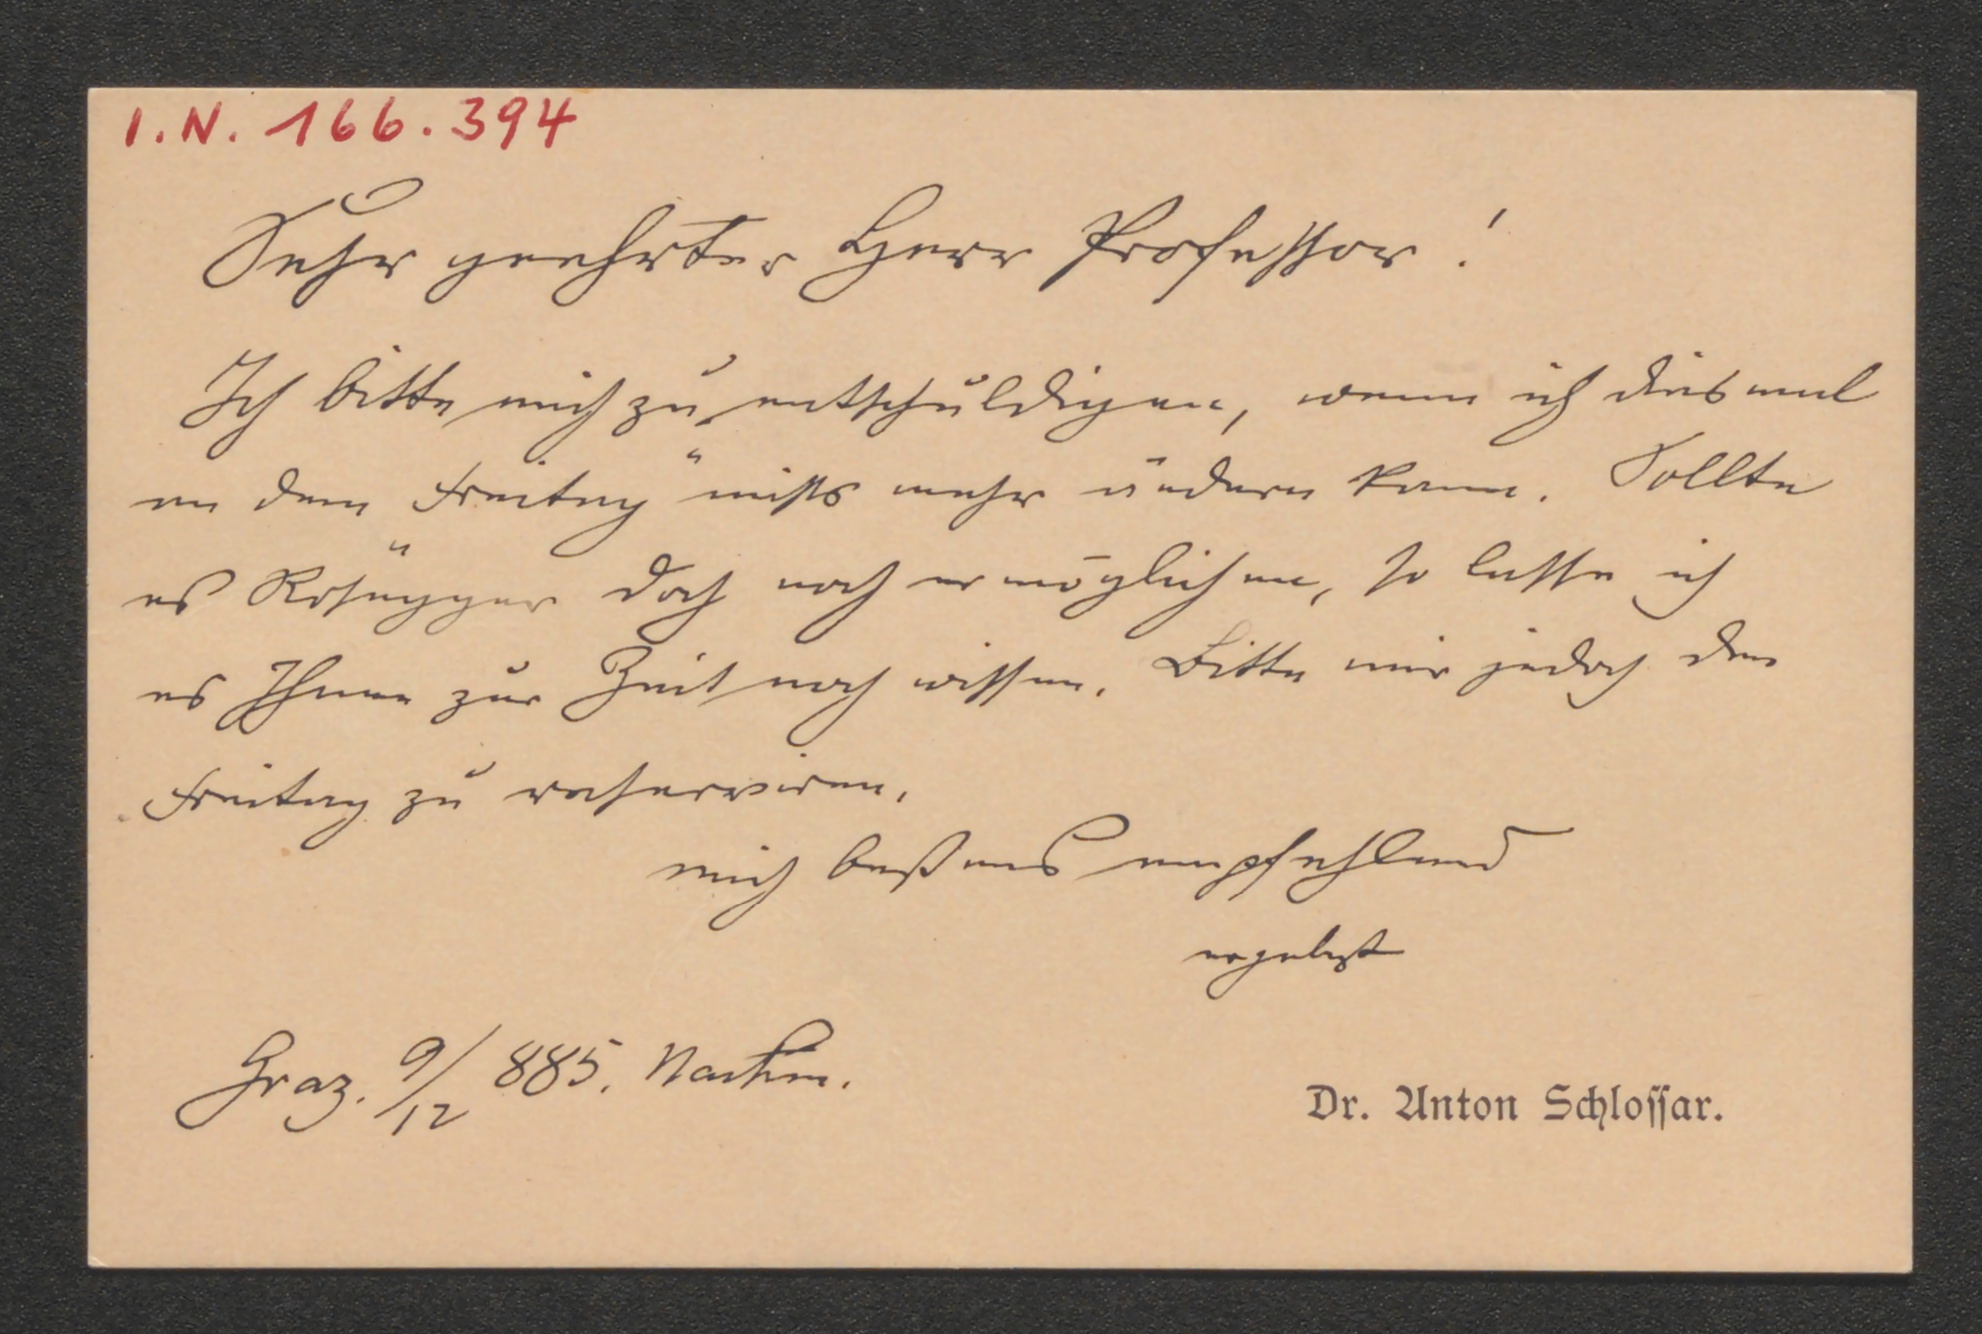 I.N. 166.394
Sehr geehrter Herr Professor!
Ich bitte mich zu entschuldigen, wenn ich diesmal
an dem „Freitag“ nichts mehr ändern kann. Sollte
es Rosegger doch noch ermöglichen, so lasse ich
es Ihnen zur Zeit noch wissen. Bitte mir jedoch den
Freitag zu reserviren.
mich bestens empfehlend
ergebst
Graz. 9/12 885. Nachm.
Dr. Anton Schlossar.